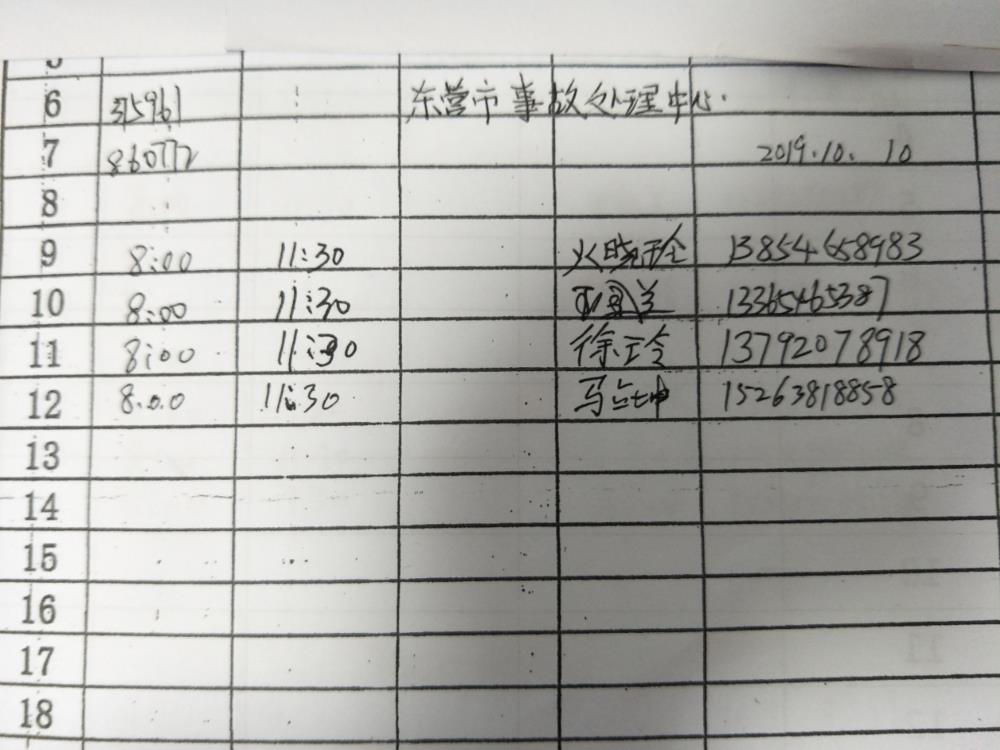 6 东营市事故处理中心.
7 860772 2019.10. 10
8
9 8:00 11:30 13854658983
10 8:00 11:30 13365465387
11 8:00 11:30 徐玲 13792078918
12 8:00 11:30 15263818858
13
14
15
16
17
18